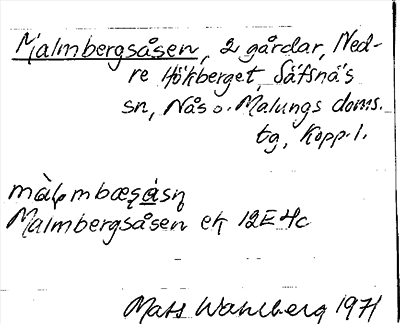 Malmbergsåsen, 2 gårdar, Ned-
re Hökberget, Säfsnäs
sn, Nås o. Malungs doms.
tg, Kopp. l.
Malmbergsåsen ek 12E4c
Mats Wahlberg 1971